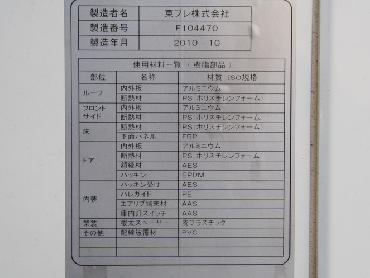 製造者名 東プレ株式会社
製造番号 F104470
製造年月 2010-10
使用材料一覧（樹脂部品）
部位 名称 材質 ISO規格
ルーフ 内外板 アルミニウム
断熱材 PS（ポリスチレンフォーム）
フロント サイド 内外板 アルミニウム
断熱材 PS（ポリスチレンフォーム）
床 断熱材 PS（ポリスチレンフォーム）
パネル FRP
ドア 内外板 アルミニウム
断熱材 PS（ポリスチレンフォーム）
AES
パッキン EPDM
内装 パッキン受け AES
PE
エアリブ AAS
庫内灯スイッチ AAS
プラスチック
その他 PVC